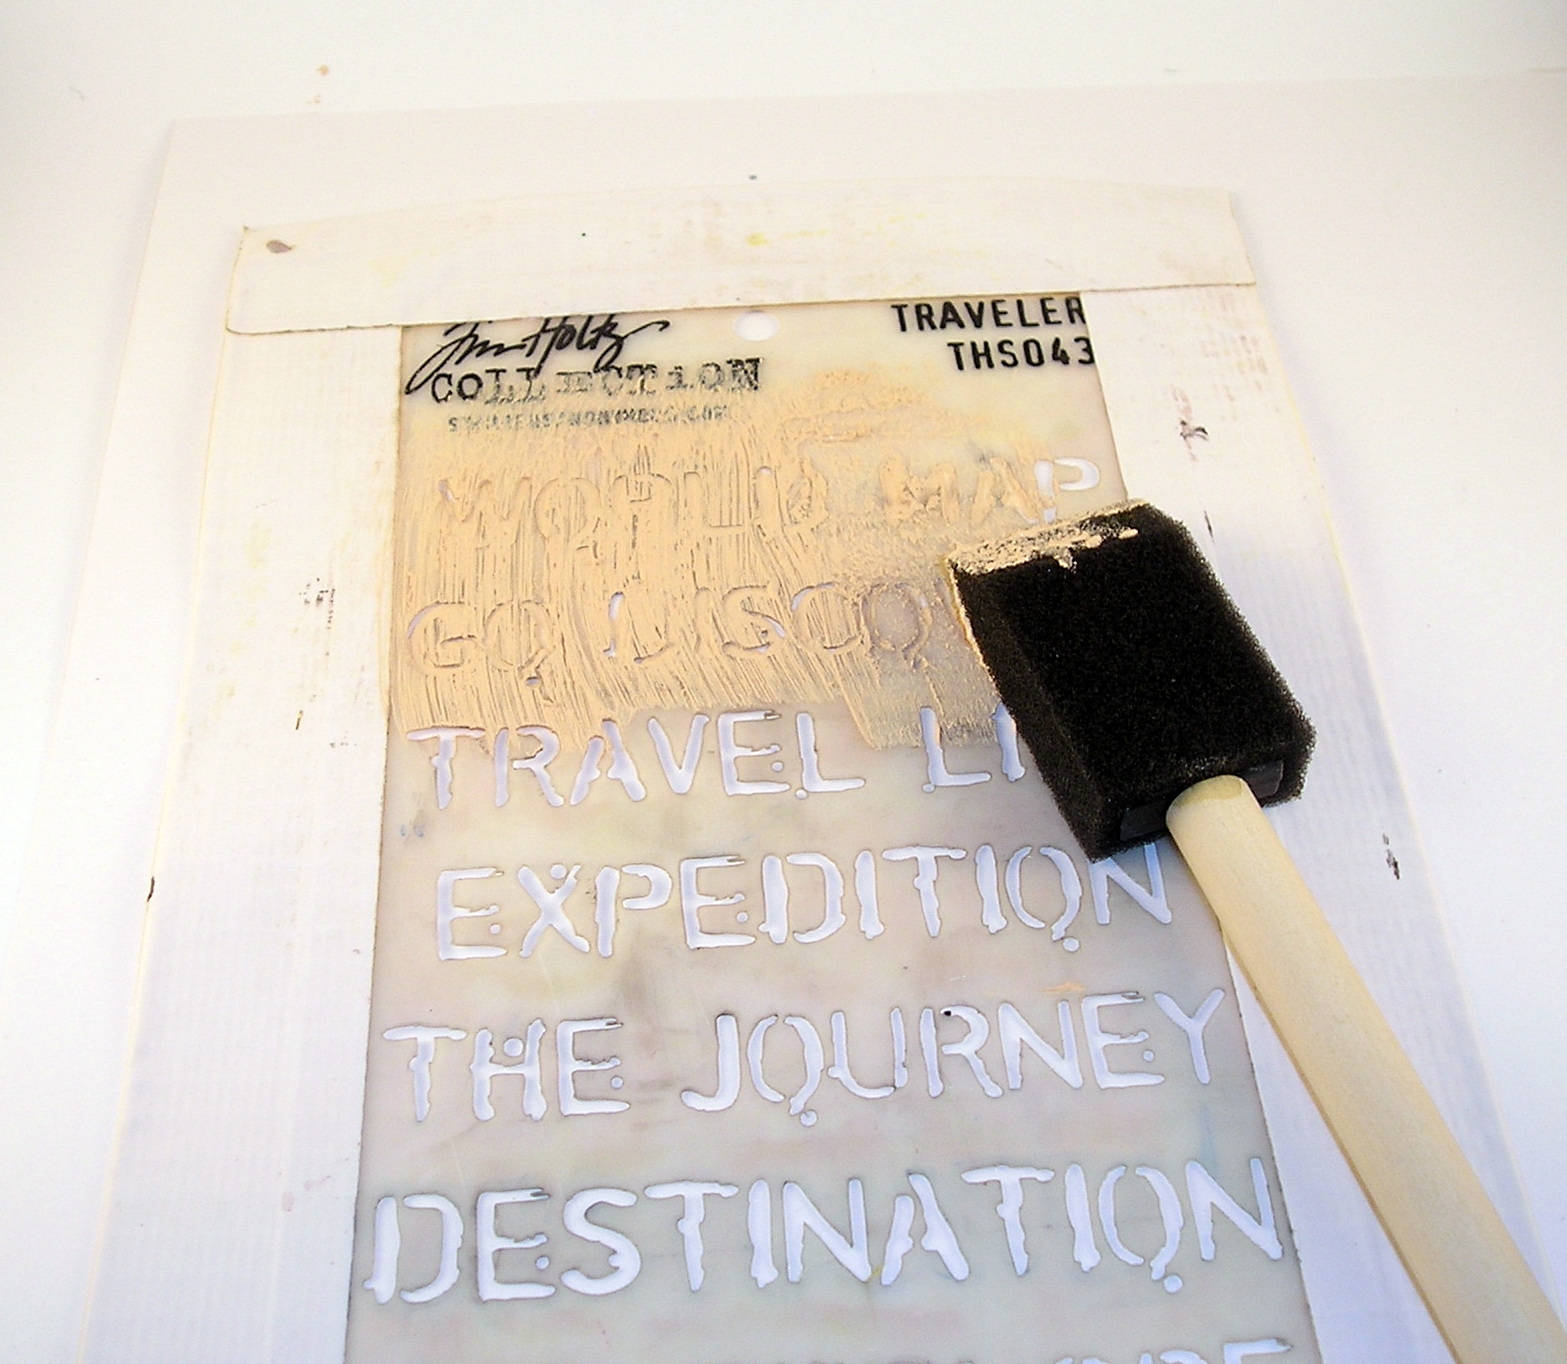 Tim Holtz
COLLECTION
TRAVELER
THS043
WORLD MAP
GO DISCOV
TRAVEL LI
EXPEDITION
THE JOURNEY
DESTINATION